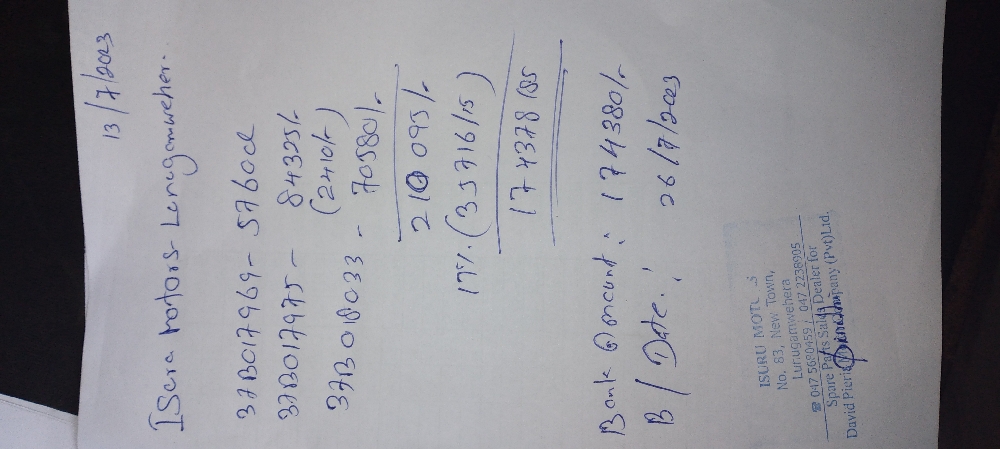 13/7/2023
Isera motors- Lunugamweher.
37B017969 - 57600/-
37B017975 - 84325/-
(2410/-)
37B018033 - 70580/-
210095/-
17%. (35716/15)
174378/85
Bank amount: 174380/-
B/Date: 26/7/2023
ISURU MOTORS
No. 83, New Town,
Lunugamwehera
☎ 047 5680459 / 047 2238905
Spare Parts Sales Dealer for
David Pieris Company (Pvt) Ltd.